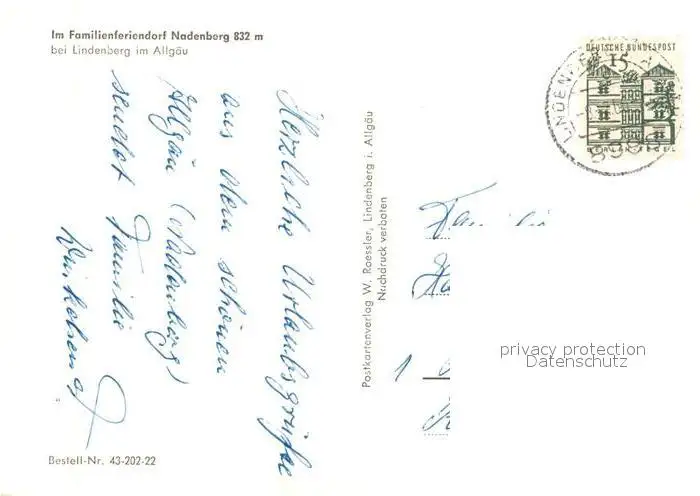 Im Familienferiendorf Nadenberg 832 m
bei Lindenberg im Allgäu
Herzliche Urlaubsgrüße
aus dem schönen
Allgäu (Nadenberg)
sendet Familie
Bestell-Nr. 43-202-22
Postkartenverlag W. Roessler, Lindenberg i. Allgäu
Nachdruck verboten
DEUTSCHE BUNDESPOST
15
LINDENBERG
8998
Familie
1
privacy protection
Datenschutz